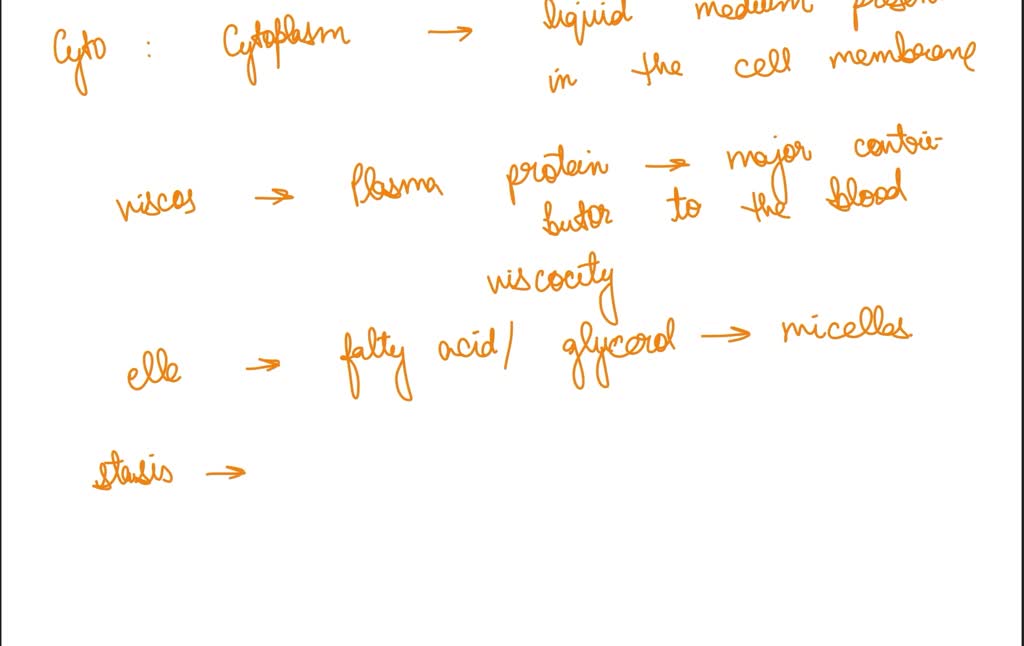 Cyto : Cytoplasm → liquid medium presen
in the cell membrane
viscos → Plasma protein → major contri-
butor to the blood
viscocity
elle → fatty acid/ glycerol → micelles
stasis →